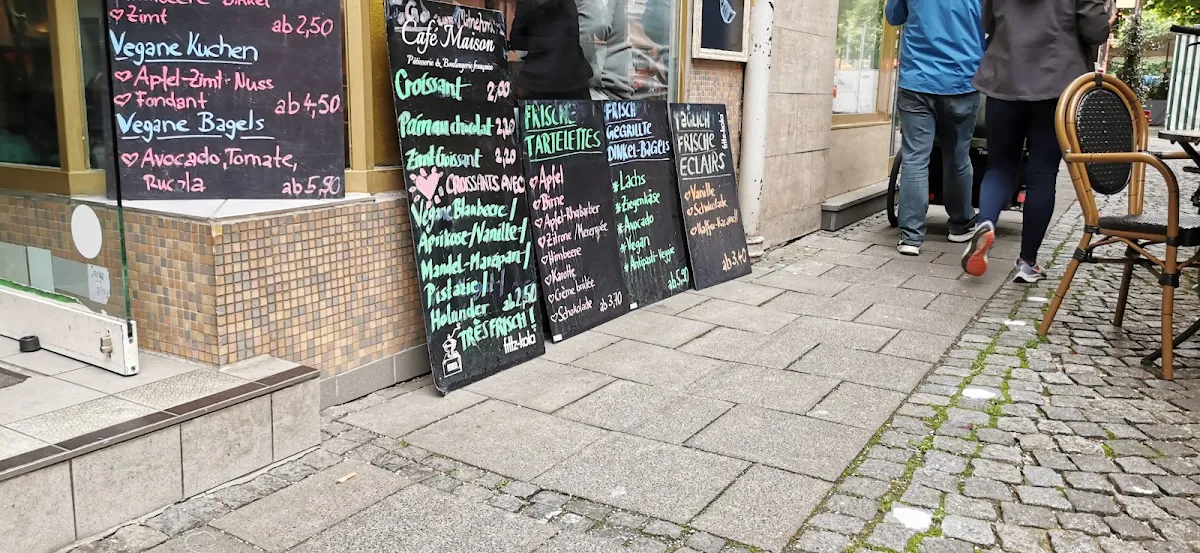 Dinkel
♡Zimt ab 2,50
Vegane Kuchen
♡Apfel-Zimt-Nuss
♡Fondant ab 4,50
Vegane Bagels
♡Avocado, Tomate,
Rucola ab 5,90
Café Maison
Pâtisserie & Boulangerie française
Croissant 2,00
Pain au chocolat 2,20
Zimt Croissant 2,20
CROISSANTS AVEC
Vegane Blaubeere/
Aprikose/Vanille/
Mandel-Marzipan/
Pistazie/
Holunder ab 2,50
TRÈS FRISCH!
fritz-kola
FRISCHE
TARTELETTES
♡Apfel
♡Birne
♡Apfel-Rhabarber
♡Zitrone/Merengue
♡Himbeere
♡Karotte
♡Crème brûlée
♡Schokolade ab 3,70
FRISCH
GEGRILLTE
DINKEL-BAGELS
*Lachs
*Ziegenkäse
*Avocado
*Vegan
*Antipasti-Veggie
ab 5,50
TÄGLICH
FRISCHE
ECLAIRS
fritz-kola
♡Vanille
♡Schokolade
♡Kaffee-Karamell
ab 3,40